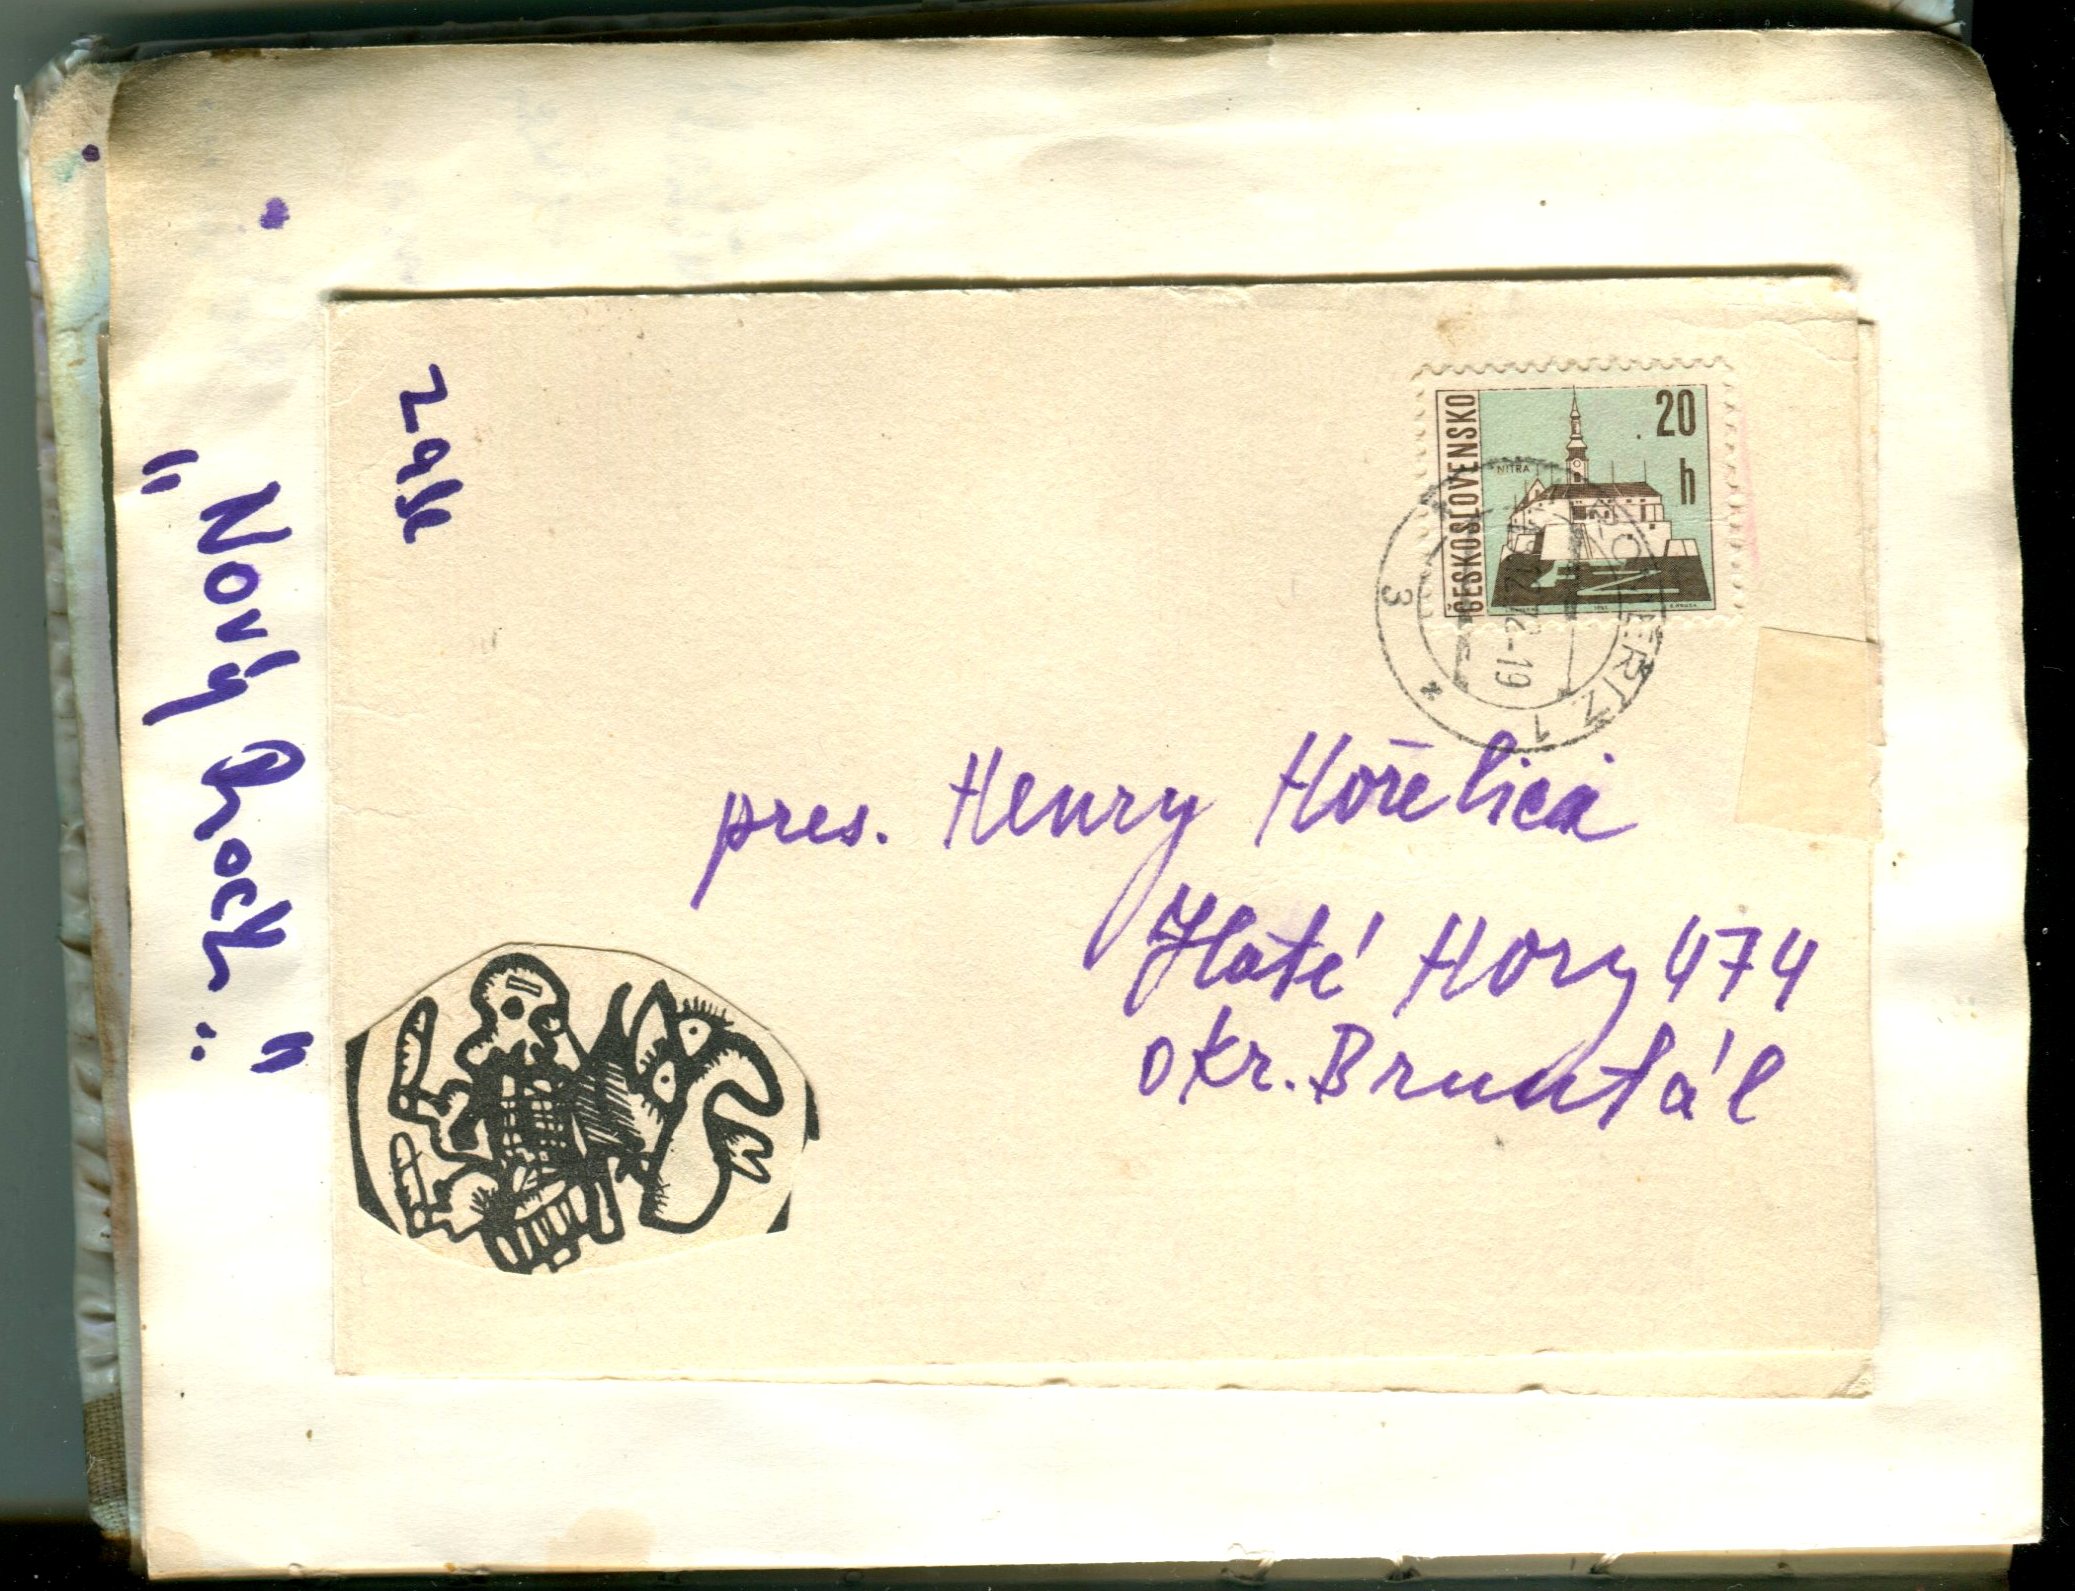 "Nový Rock.."
zase
ČESKOSLOVENSKO
20
h
NITRA
pres. Henry Hořelica
Zlaté Hory 474
okr. Bruntál
3
1